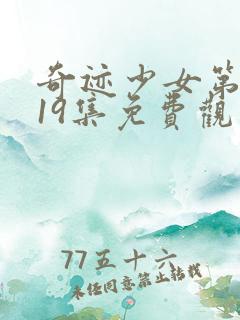 奇迹少女第
19集免費觀
77五十六
未经同意禁止转载